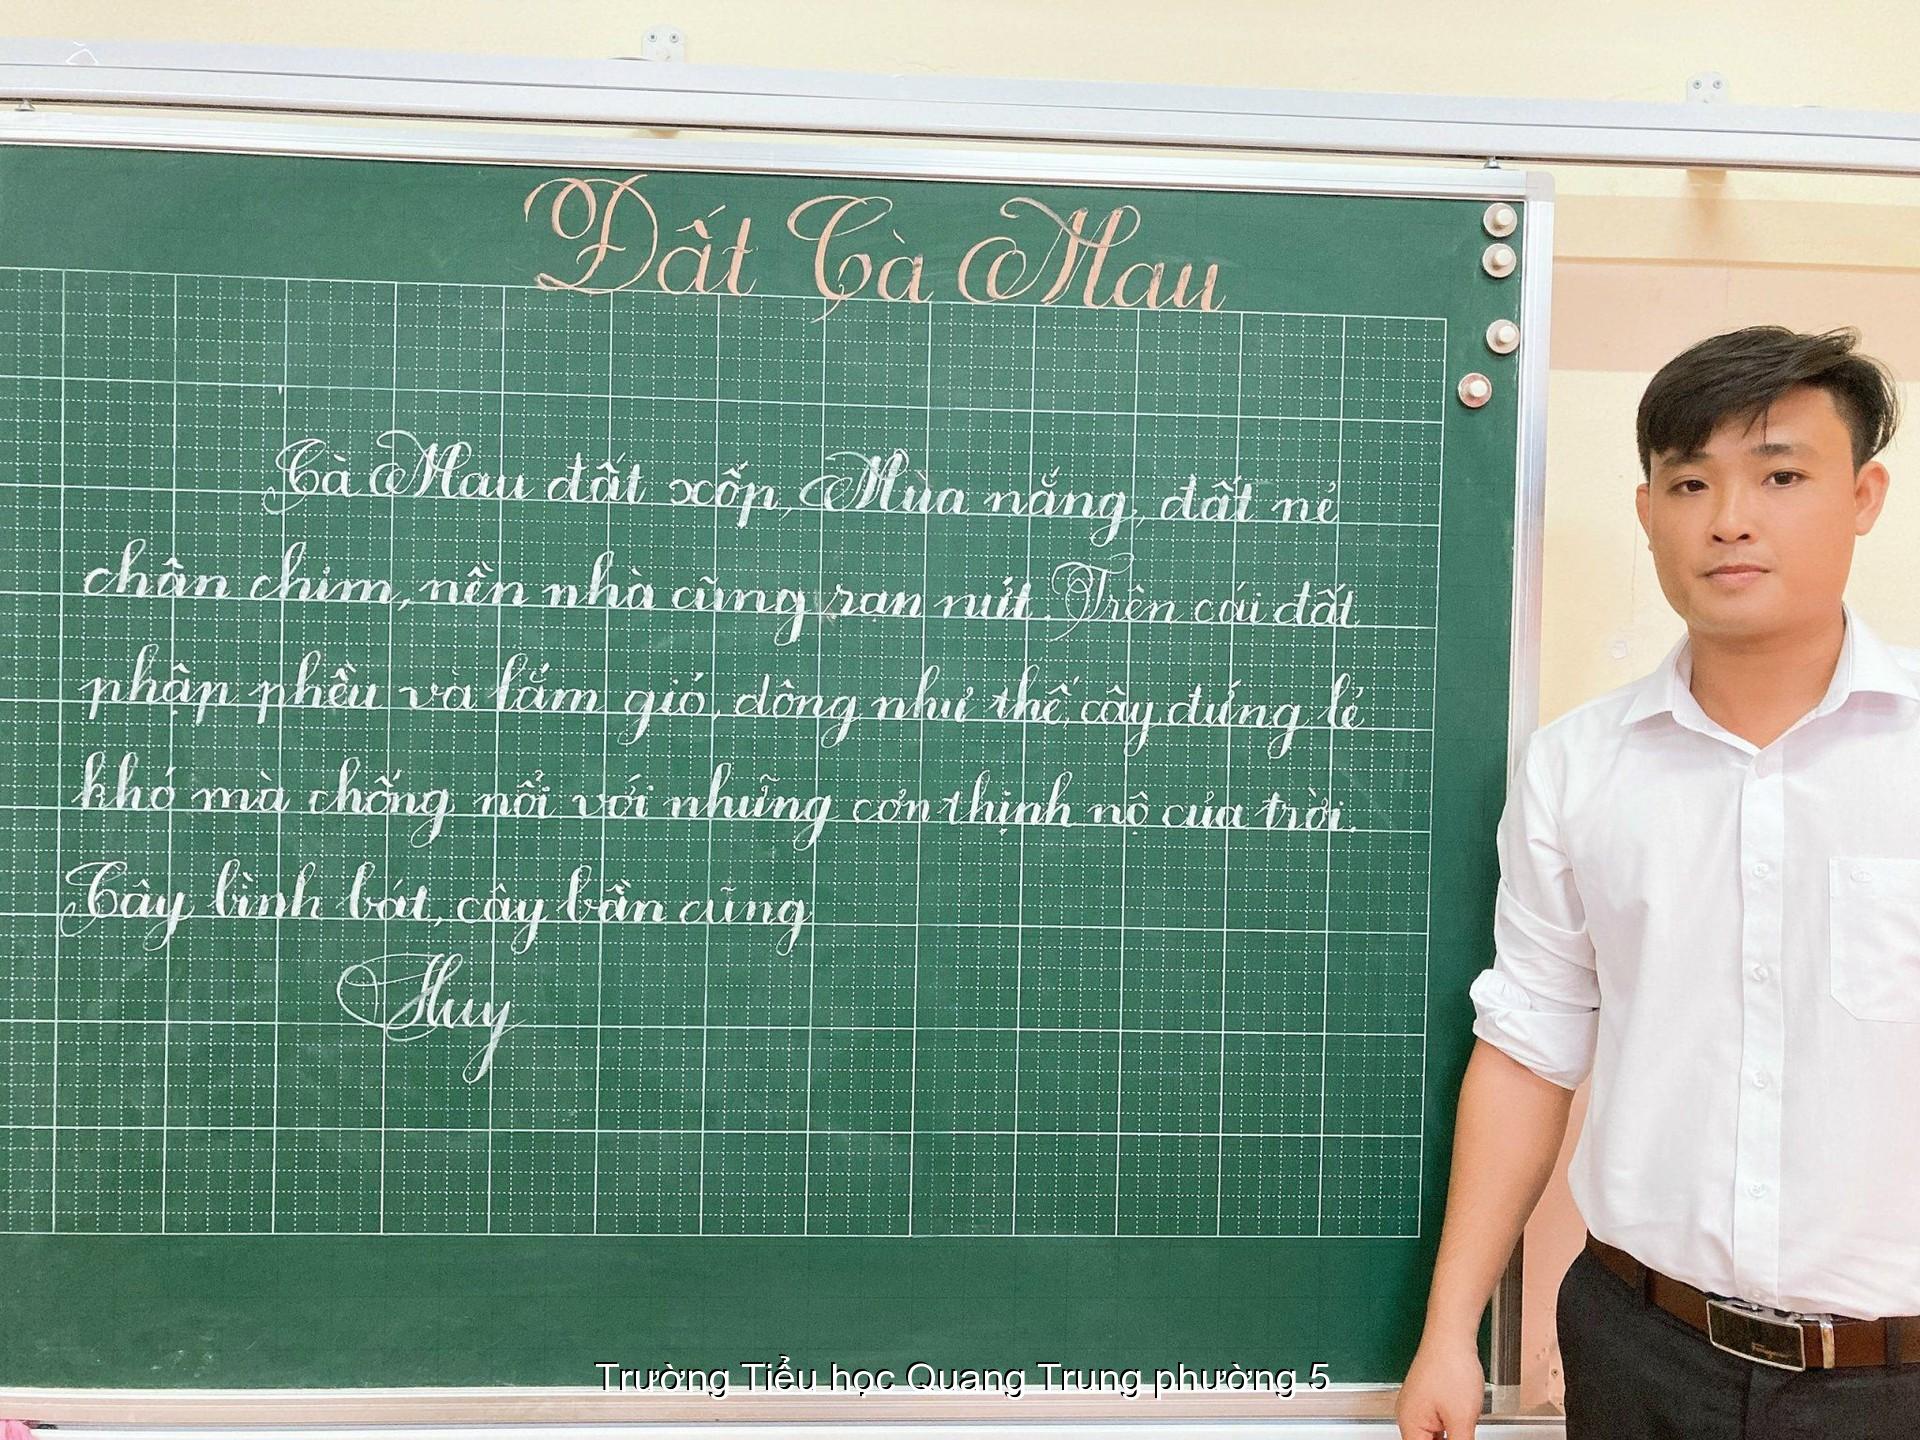 Đất Cà Mau
Cà Mau đất xốp, Mùa nắng, đất nẻ
chân chim, nền nhà cũng rạn nứt. Trên cái đất
nhập phều và lắm gió, dông như thế, cây đứng lẻ
khó mà chống nổi với những cơn thịnh nộ của trời.
Cây bình bát, cây bần cũng
Huy
Trường Tiểu học Quang Trung phường 5